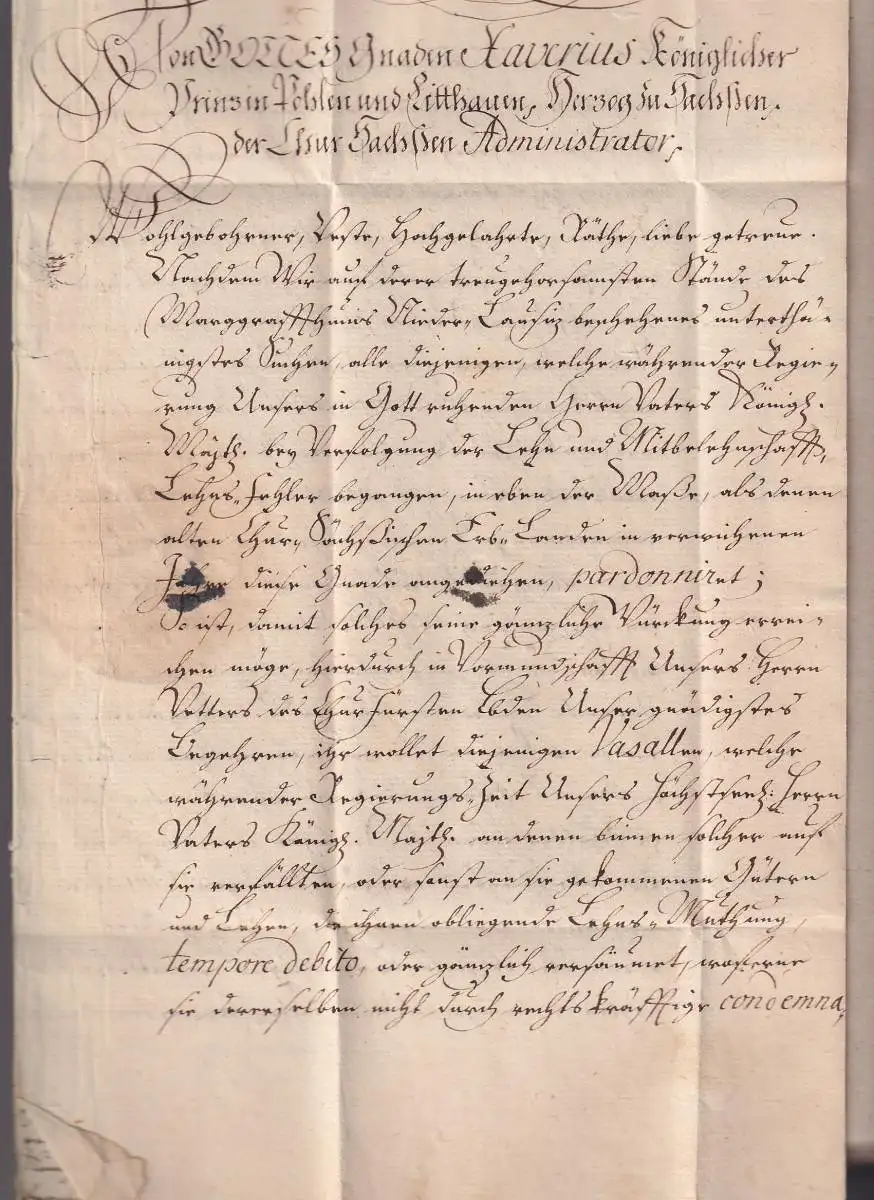 Von GOTTES Gnaden Xaverius Königlicher
Prinz in Pohlen und Litthauen, Herzog zu Sachßen,
der Chur Sachßen Administrator,
Wohlgebohrner, Veste, Hochgelahrte, Räthe, liebe getreue.
Nachdem Wir auf derer treugehorsamsten Stände des
Marggraffthums Nieder-Lausiz beschehenes unterthä-
nigstes Suchen, alle diejenigen, welche während der Regie-
rung Unsers in Gott ruhenden Herrn Vaters Königl.
Majth. bey Verfolgung der Lehn und Mitbelehnschafft,
Lehns-Fehler begangen, in eben der Maße, als denen
alten Chur-Sächßischen Erb-Landen in verwichenen
Jahre diese Gnade angediehen, pardonniret;
So ist, damit solches seine gänzliche Würckung errei-
chen möge, hierdurch in Vormundschafft Unsers Herrn
Vetters des Churfürsten Lbden Unser gnädigstes
Begehren, ihr wollet diejenigen Vasallen, welche
während der Regierungs-Zeit Unsers Höchstseel: Herrn
Vaters Königl. Majth. an denen binnen solcher auf
sie verfällten, oder sonst an sie gekommenen Gütern
und Lehen, die ihnen obliegende Lehns-Muthung,
tempore debito, oder gänzlich versäumet, woferne
sie derselben nicht durch rechtskräfftige condemna,